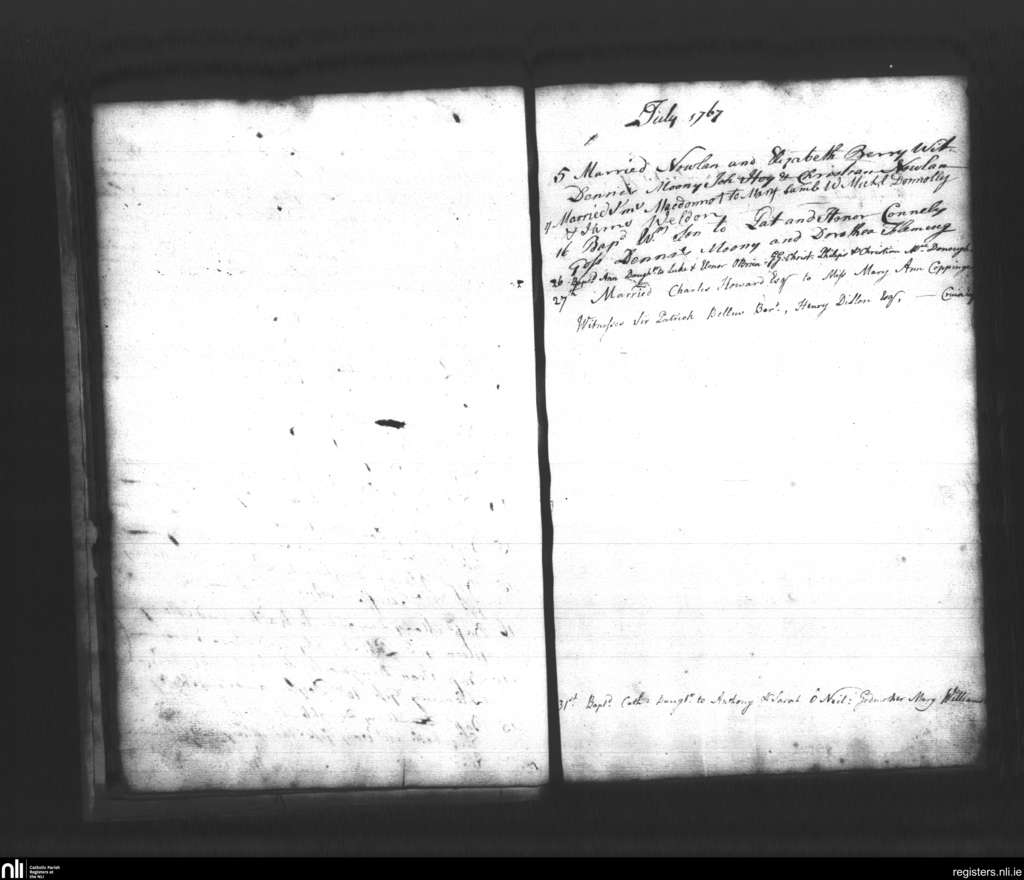 July 1767
5 Married Nowlan and Elizabeth Berry Wit-
Dennis Moony Joh Hoy & Christian Nowlan
4 Married Macdonnot to Mary Lamb W Michl Donnolly
& James Weldon
16 Bapd Wm Son to Pat and Honor Connely
Goss Dennis Moony and Dorothea Fleming
26 Baptd Ann Daughtr to Luke & Honor OBrien GG Christ. Philips & Christian Mc Donough
27th Married Charles Howard Esqr to Miss Mary Ann Coppinger
Witnesses Sir Patrick Bellew Bart., Henry Dillon Esqr,
31st Baptd. Cathe Daughtr. to Anthony & Sarah O Neil: Godmother Mary William
nli
Catholic Parish
Registers at
the NLI
registers.nli.ie